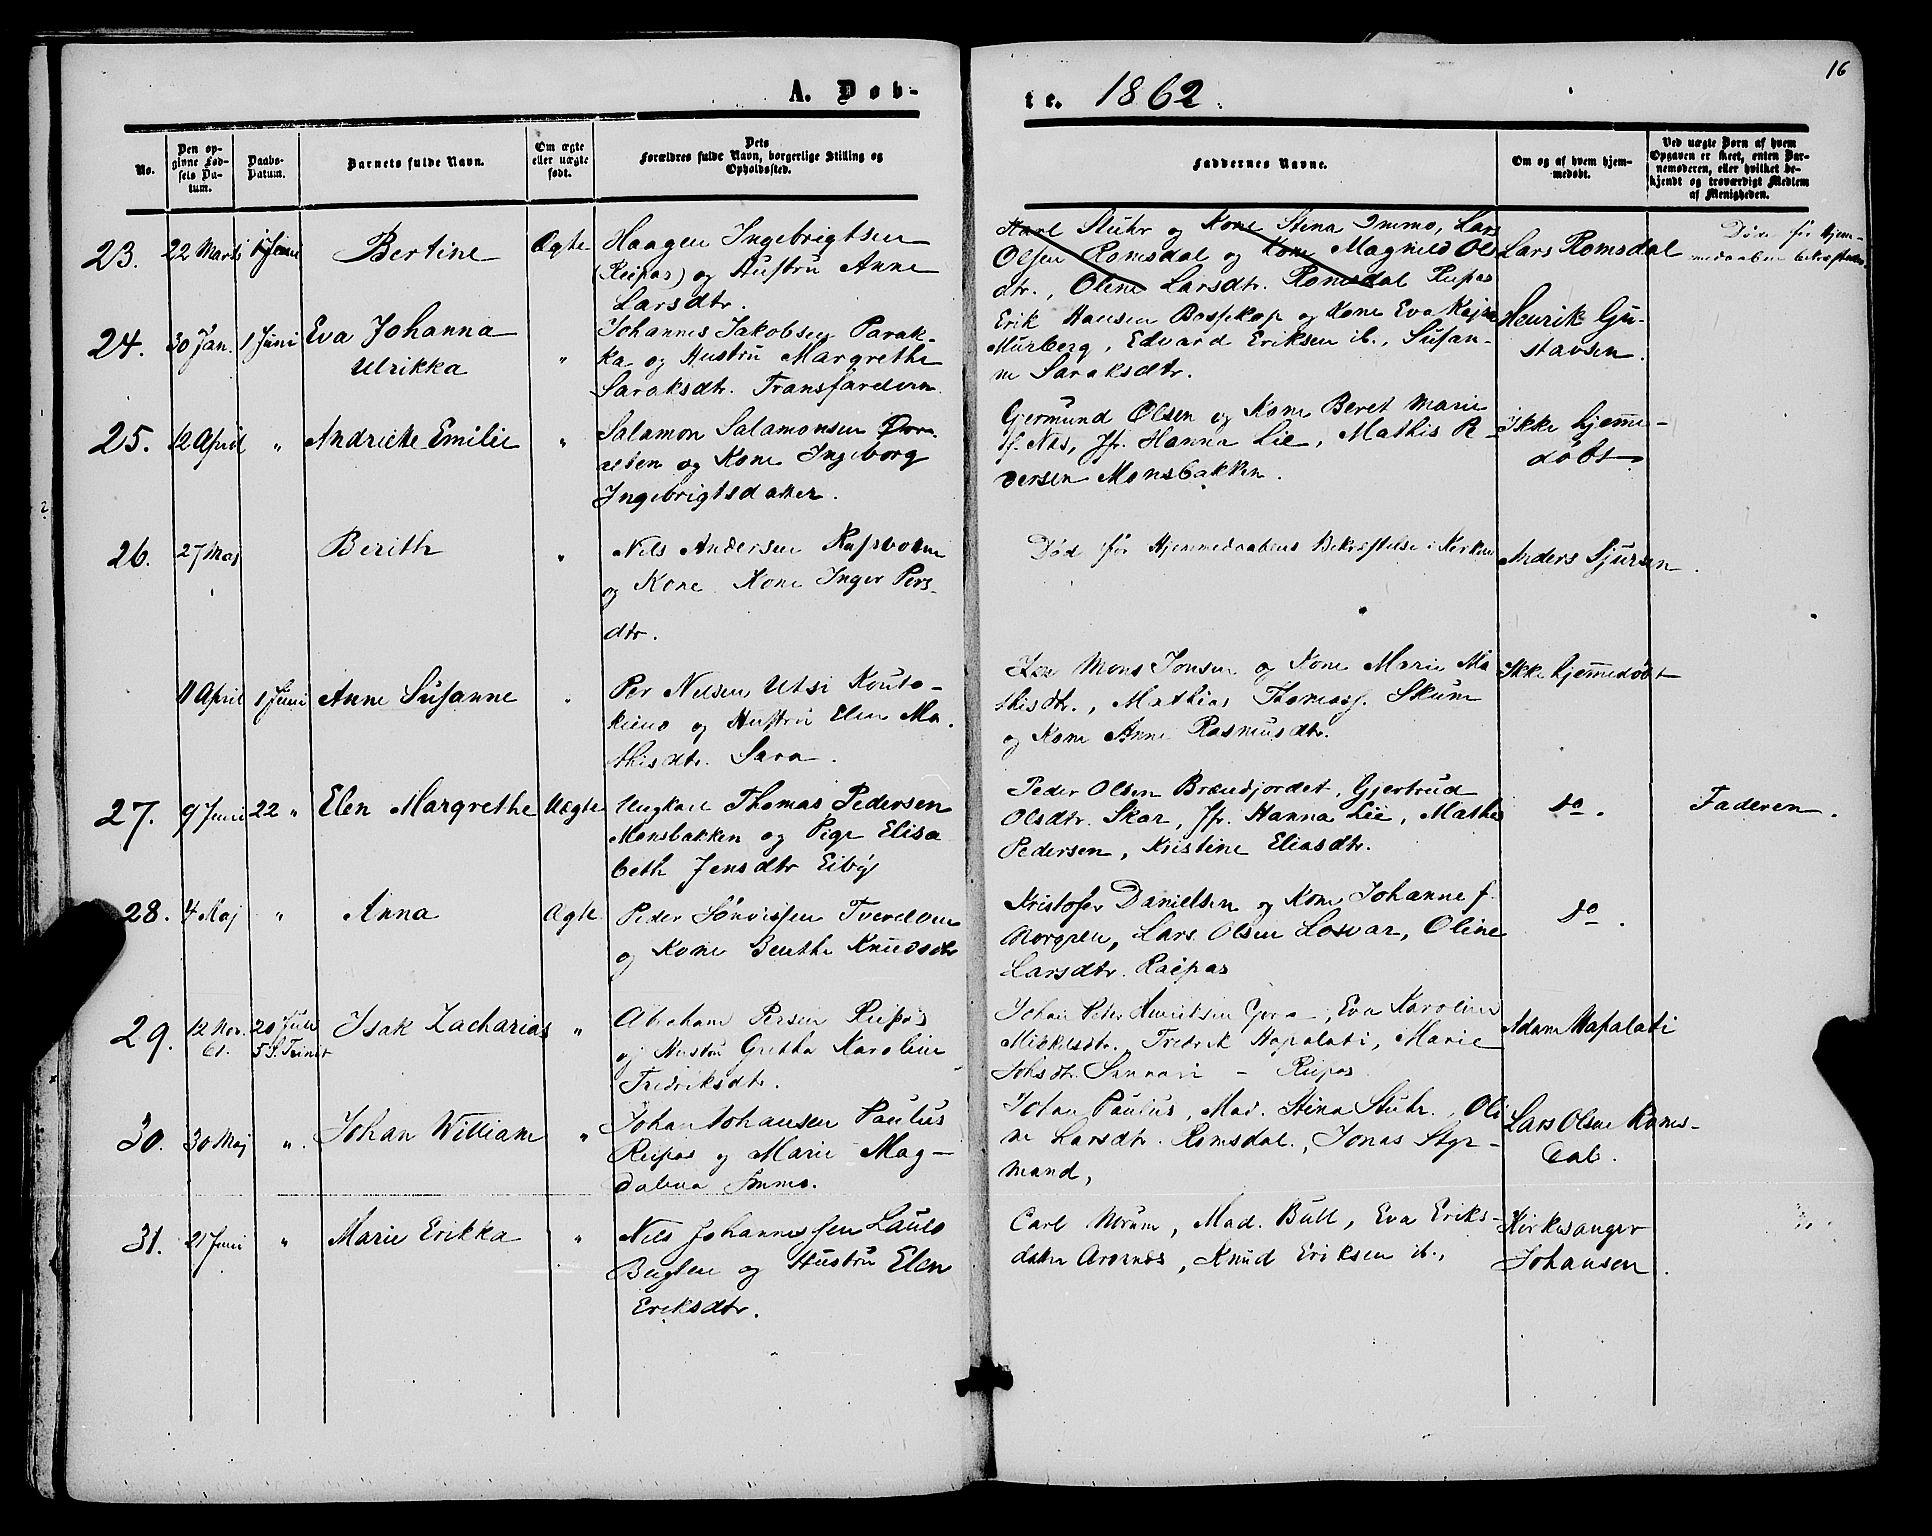 16
A. Døb-
te. 1862.
No.
Den op-
givne Fød-
sels Da-
tum.
Daabs-
Datum.
Barnets fulde Navn.
Om ægte
eller uægte
født.
Dets
Forældres fulde Navn, borgerlige Stilling og
Opholdssted.
Faddernes Navne.
Om og af hvem hjem-
medøbt.
Ved uægte Børn af hvem
Opgaven er skeet, enten Bar-
nemoderen, eller hvilket be-
kjendt og troværdigt Medlem
af Menigheden.
23. 22 Marts 1 Juni Bertine Ægte
Haagen Ingebrigtsen
(Reipas) og Hustru Anne
Larsdtr.
Karl Stuhr og Kone Stina Immo, Lars
Olsen Romsdal og Kone Magnild Ols
dtr., Oline Larsdtr. Romsdal Reipas
Lars Romsdal
Døde før Hjem-
medaaben
24. 30 Jan. 1 Juni Eva Johanna
Ulrikka "
Johannes Jakobsen Parak-
ka og Hustru Margrethe
Saraksdtr. Transfaredven
Erik Hansen Bossekop og Kone Eva Kajsa
Murberg, Edvard Eriksen ib., Susan-
ne Saraksdtr.
Henrik Gu-
stavsen
25. 12 April " Andrikke Emilie "
Salamon Salamonsen
og Kone Ingeborg
Ingebrigtsdatter.
Gjermund Olsen og Kone Beret Marie
f. Næs, Jfr. Hanna Lie, Mathis P-
dersen Monsbakken.
Ikke hjemme-
døbt
26. 27 Maj Berith "
Nils Andersen
og Kone Kone Inger Pers-
dtr.
Død før Hjemmedaabens Bekræftelse i Kirken
Anders Sjursen
11 April 1 Juni Anne Susanne "
Per Nilsen Utsi Kouto-
keino og Hustru Elen Ma-
thisdtr. Sara.
Mons Jonsen og Kone Marie Ma-
thisdtr., Mathias Thomass. Skum
og Kone Anne Rasmusdtr.
Ikke hjemmedøbt
27. 9 Juni 22 " Elen Margrethe Uægte
Ungkarl Thomas Pedersen
Monsbakken og Pige Elisa
beth Jensdtr Eiby
Peder Olsen Brændjordet, Gjertrud
Olsdtr. Skar, Jfr. Hanna Lie, Mathis
Pedersen, Kristine Eliasdtr.
do.
Faderen.
28. 4 Maj " Anna Ægte
Peder Tverelven
og Kone Berithe Knudsdtr
Kristofer Danielsen og Kone Johanne f.
Norgren, Lars Olsen Losvar, Oline
Larsdtr. Raipas
do.
29. 12 Nov.
61. 20 Juli
5 S. Trinit Isak Zacharias "
Abraham Persen Reipas
og Hustru Grethe Karoline
Fredriksdtr.
Johan Peter Henriksen, Eva Karoline
Mikkelsdtr. Fredrik Hapalati, Marie
Johsdtr. Sannari - Reipas
Adam Hapalati
30. 30 Maj ". Johan William "
Johan Johansen Paulus
Reipas og Marie Mag-
dalena Immo.
Johan Paulus, Mad. Stina Stuhr., Oli
ne Larsdtr. Romsdal., Jonas Styr-
mand,
Lars Olsen Roms-
dal.
31. 21 Juni " Marie Erikka "
Nils Johannessen Lauto
Buglen og Hustru Elen
Eriksdtr.
Carl Nrum, Mad. Bull, Eva Eriks-
datter Aronnes, Knud Eriksen ib.,
Kirkesanger
Johansen.